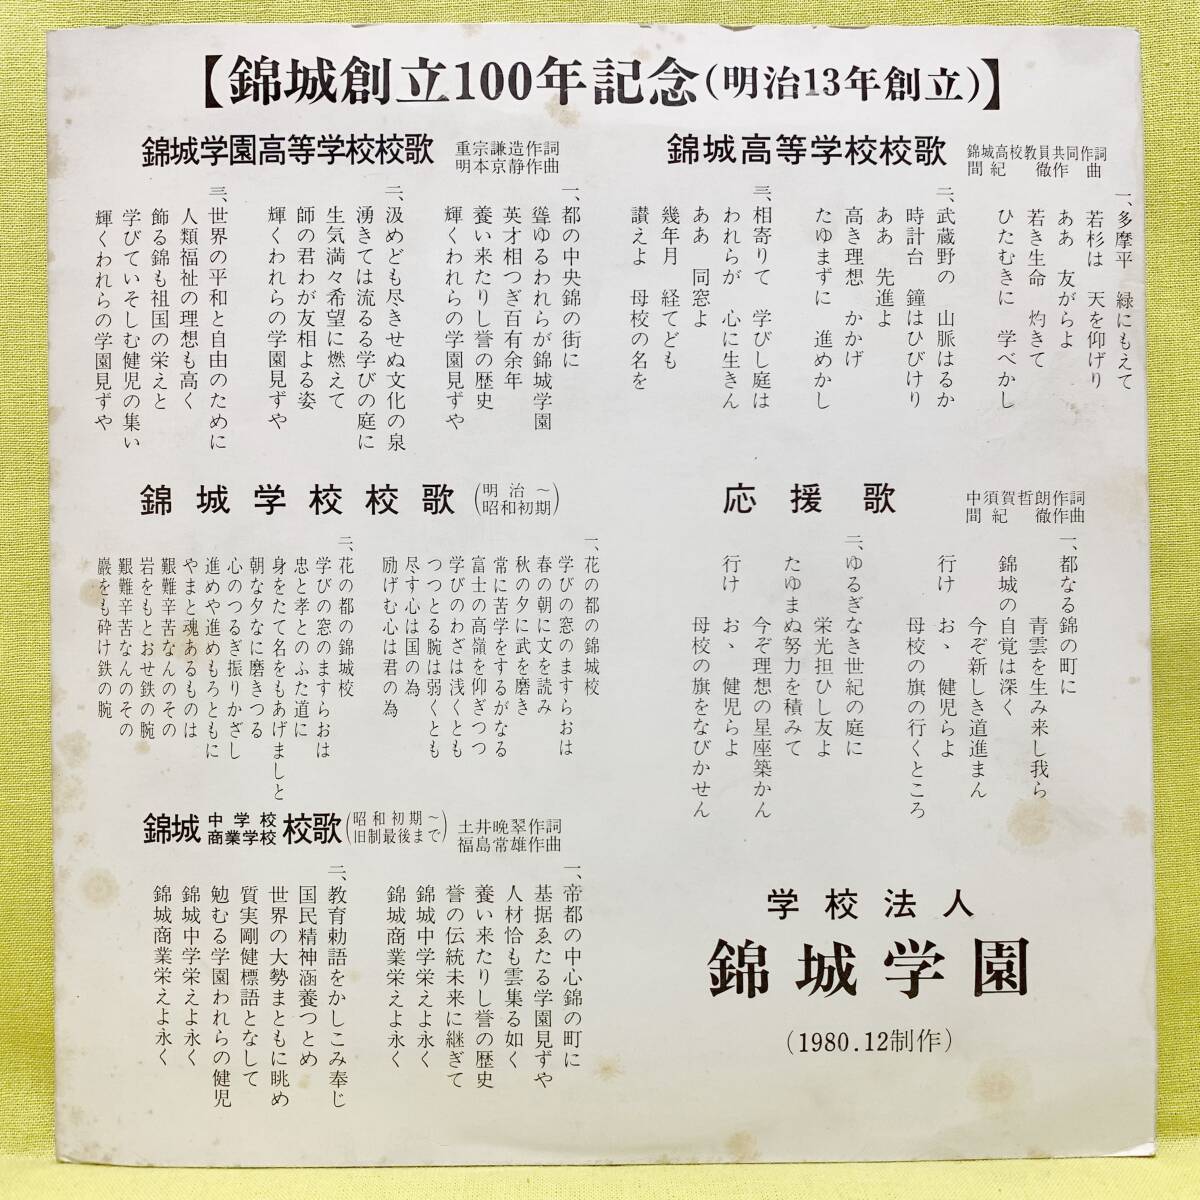 【錦城創立100年記念(明治13年創立)】
錦城高等学校校歌
錦城高校教員共同作詞
間紀徹作曲
一、多摩平　緑にもえて
若杉は　天を仰げり
ああ　友がらよ
若き生命　灼きて
ひたむきに　学べかし
二、武蔵野の　山脈はるか
時計台　鐘はひびけり
ああ　先進よ
高き理想　かかげ
たゆまずに　進めかし
三、相寄りて　学びし庭は
われらが　心に生きん
ああ　同窓よ
幾年月　経てども
讃えよ　母校の名を
錦城学園高等学校校歌
重宗謙造作詞
明本京静作曲
一、都の中央錦の街に
聳ゆるわれらが錦城学園
英才相つぎ百有余年
養い来たりし誉の歴史
輝くわれらの学園見ずや
二、汲めども尽きせぬ文化の泉
湧きては流るる学びの庭に
生気満々希望に燃えて
師の君わが友相よる姿
輝くわれらの学園見ずや
三、世界の平和と自由のために
人類福祉の理想も高く
飾る錦も祖国の栄えと
学びていそしむ健児の集い
輝くわれらの学園見ずや
応援歌
中須賀哲朗作詞
間紀徹作曲
一、都なる錦の町に
青雲を生み来し我ら
錦城の自覚は深く
今ぞ新しき道進まん
行け　お、健児らよ
母校の旗の行くところ
二、ゆるぎなき世紀の庭に
栄光担ひし友よ
たゆまぬ努力を積みて
今ぞ理想の星座築かん
行け　お、健児らよ
母校の旗をなびかせん
錦城学校校歌
(明治～昭和初期)
一、花の都の錦城校
学びの窓のますらおは
春の朝に文を読み
秋の夕に武を磨き
常に苦学をするがなる
富士の高嶺を仰ぎつつ
学びのわざは浅くとも
つつとる腕は弱くとも
尽す心は国の為
励げむ心は君の為
二、花の都の錦城校
学びの窓のますらおは
忠と孝とのふた道に
身をたて名をもあげましと
朝な夕なに磨きつる
心のつるぎ振りかざし
進めや進めもろともに
やまと魂あるものは
艱難辛苦なんのその
岩をもとおせ鉄の腕
艱難辛苦なんのその
巌をも砕け鉄の腕
錦城中学校商業学校校歌
(昭和初期～旧制最後まで)
土井晩翠作詞
福島常雄作曲
一、帝都の中心錦の町に
基据ゑたる学園見ずや
人材恰も雲集る如く
養い来たりし誉の歴史
誉の伝統未来に継ぎて
錦城中学栄えよ永く
錦城商業栄えよ永く
二、教育勅語をかしこみ奉じ
国民精神涵養つとめ
世界の大勢まともに眺め
質実剛健標語となして
勉むる学園われらの健児
錦城中学栄えよ永く
錦城商業栄えよ永く
学校法人
錦城学園
(1980.12制作)